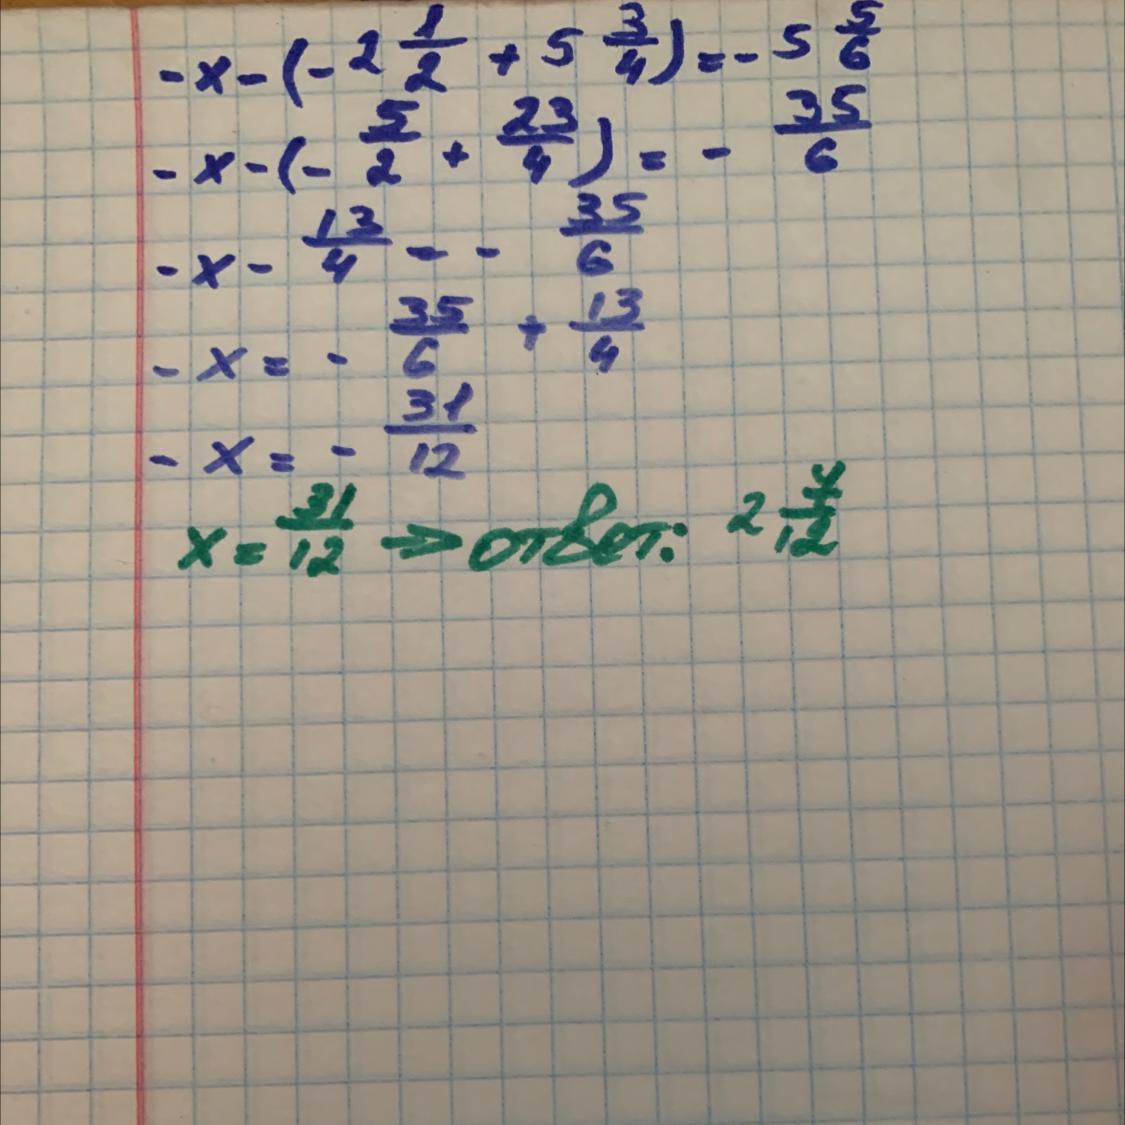 -x-(-2 1/2 + 5 3/4) = - 5 5/6
-x-(- 5/2 + 23/4) = - 35/6
-x- 13/4 = - 35/6
-x = - 35/6 + 13/4
-x = - 31/12
x = 31/12 → ответ: 2 /12